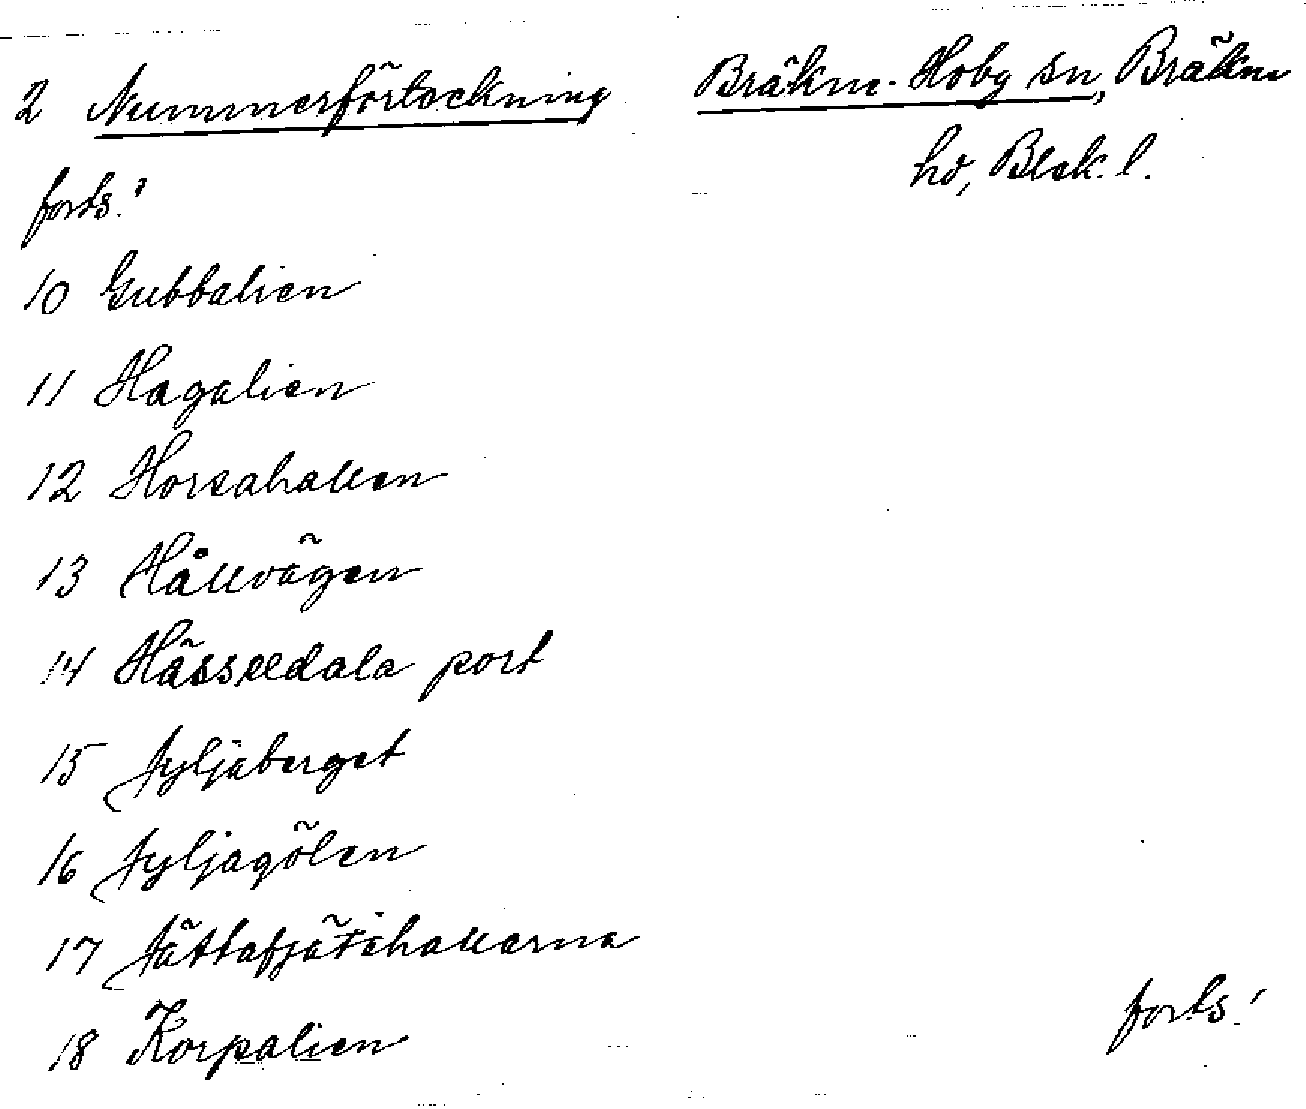 2 Nummerförteckning Bräkne-Hoby sn, Bräkne
hd, Blek. l.
forts.!
10 Gubbalien
11 Hagalien
12 Horsahallen
13 Hållvägen
14 Hässeldala port
15 Jyljaberget
16 Jyljagölen
17 Jättafjätshallarna
18 Korpalien
forts.!